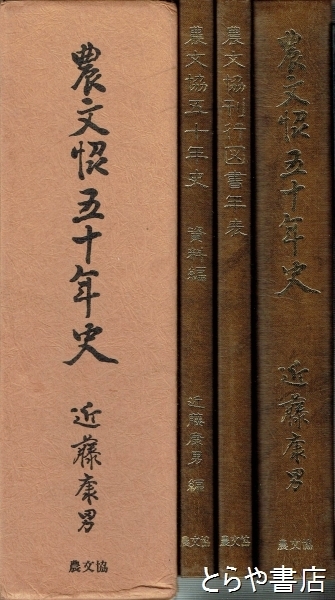 農文协五十年史
近藤康男
農文協
農文協五十年史 資料編
近藤康男 編
農文協
農文協刊行図書年表
農文協
農文协五十年史
近藤康男
農文協
とらや書店